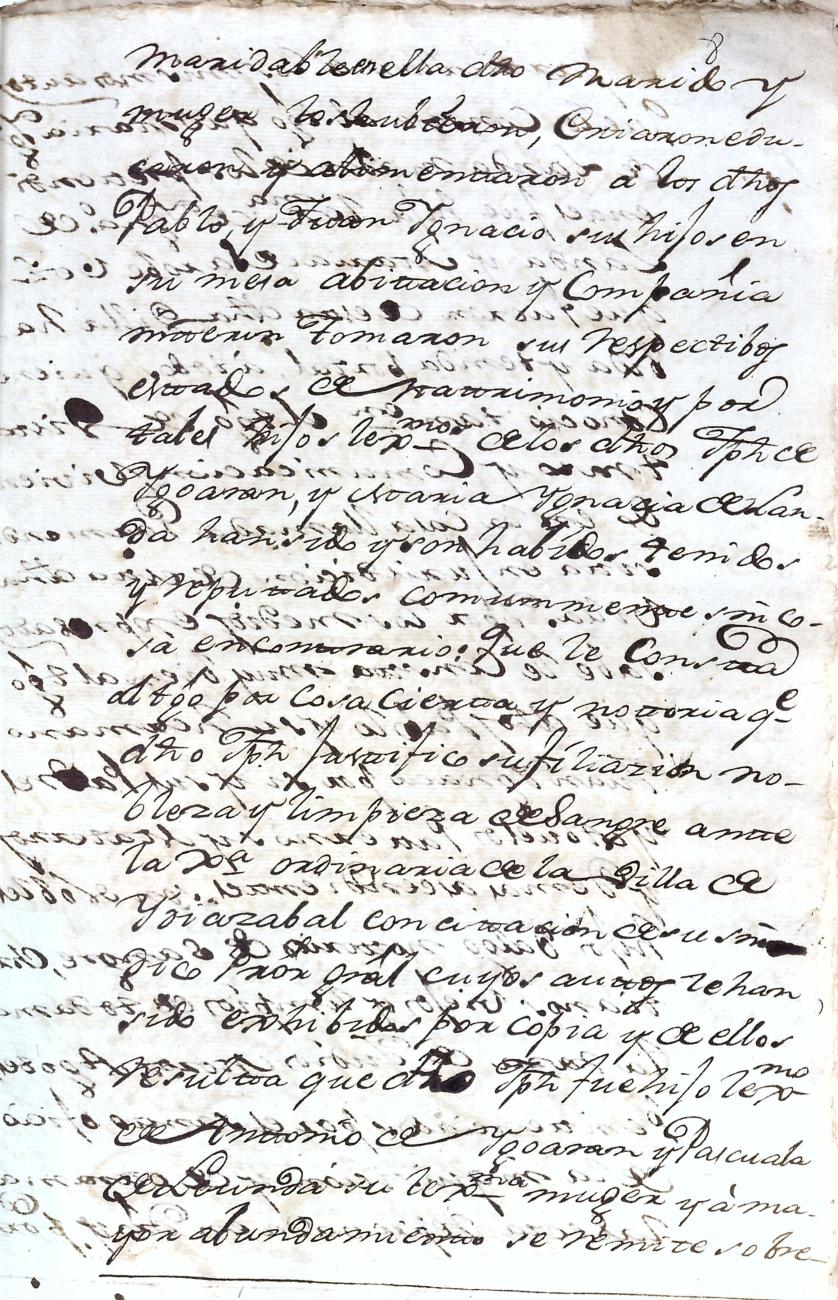 8
maridable en ella dho Marido y
muger los hubieron, Criaron edu-
caron y alimentaron a los dhos
Pablo, y Juan Ygnacio sus hijos en
su mesa abittacion y Compañia
tomaron sus respectibos
esttados de mattrimonio y por
tales hijos lexmos de los dhos Jph de
Ygoaran, y Maria Ygnazia de Lan-
da han sido y son habidos tenidos
y reputtados comunmentte sin co-
sa en conttrario: Que le Constta
al tgo por cosa cierta y nottoria qe
dho Jph justtifico su filiazion no-
bleza y limpieza de Sangre antte
la Xa ordinaria de la Villa de
Ydiazabal con cittacion de su sin
dico Pror gral cuyos auttos le han
sido exhibidos por copia y de ellos
resultta que dho Jph fue hijo lexmo
de Anttonio de Ygoaran y Pascuala
de su lexma muger y à ma-
yor abundamientto se remite sobre